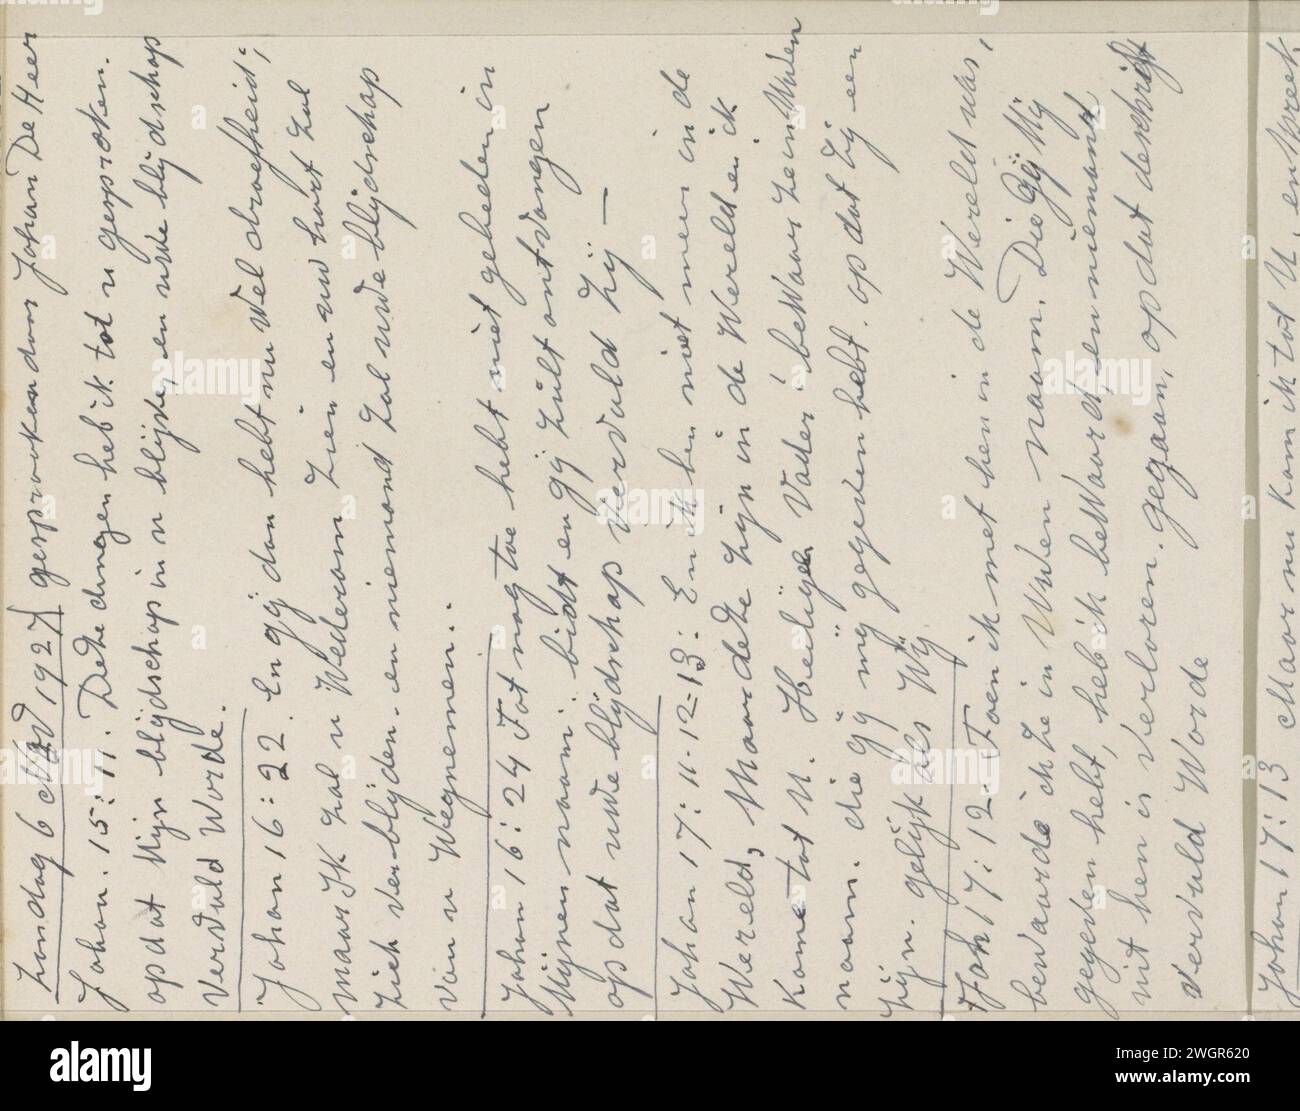 Zondag 6 Nov 1927 gesprooken door Johan De Heer
Johan. 15:11. Deze dingen heb ik tot u gesproken.
opdat Mijn blijdschap in u blijde, en uwe blijdschap
Vervuld Worde.
Johan 16:22. En gij dan hebt nu Wel droefheid;
maar Ik zal u Wederom zien en uw hart zal
zich verblijden. en niemand zal uwe blijdschap
van u Wegnemen.
Johan 16:24 Tot nog toe hebt niet gebeden in
Mijnen naam; bidt en gij zult ontvangen
opdat uwe blijdschap Vervuld Zij —
Johan 17:11-12-13: En ik ben niet meer in de
Wereld, Maar deze zijn in de Wereld en ik
Kome tot U. Heilige Vader! beWaar ze in Uwen
naam. die gij mij gegeven hebt. opdat zij een
zijn. gelijk als Wij
Joh 17:12. Toen ik met hen in de Wereld was,
bewaarde ik ze in Uwen naam. Die Gij Mij
gegeven hebt, heb ik beWaard, en niemand
uit hen is Verloren. gegaan, opdat de schrift
Vervuld Worde
Johan 17:13 Maar nu Kom ik tot U, en spreek
alamy
Image ID: 2WGR620
www.alamy.com